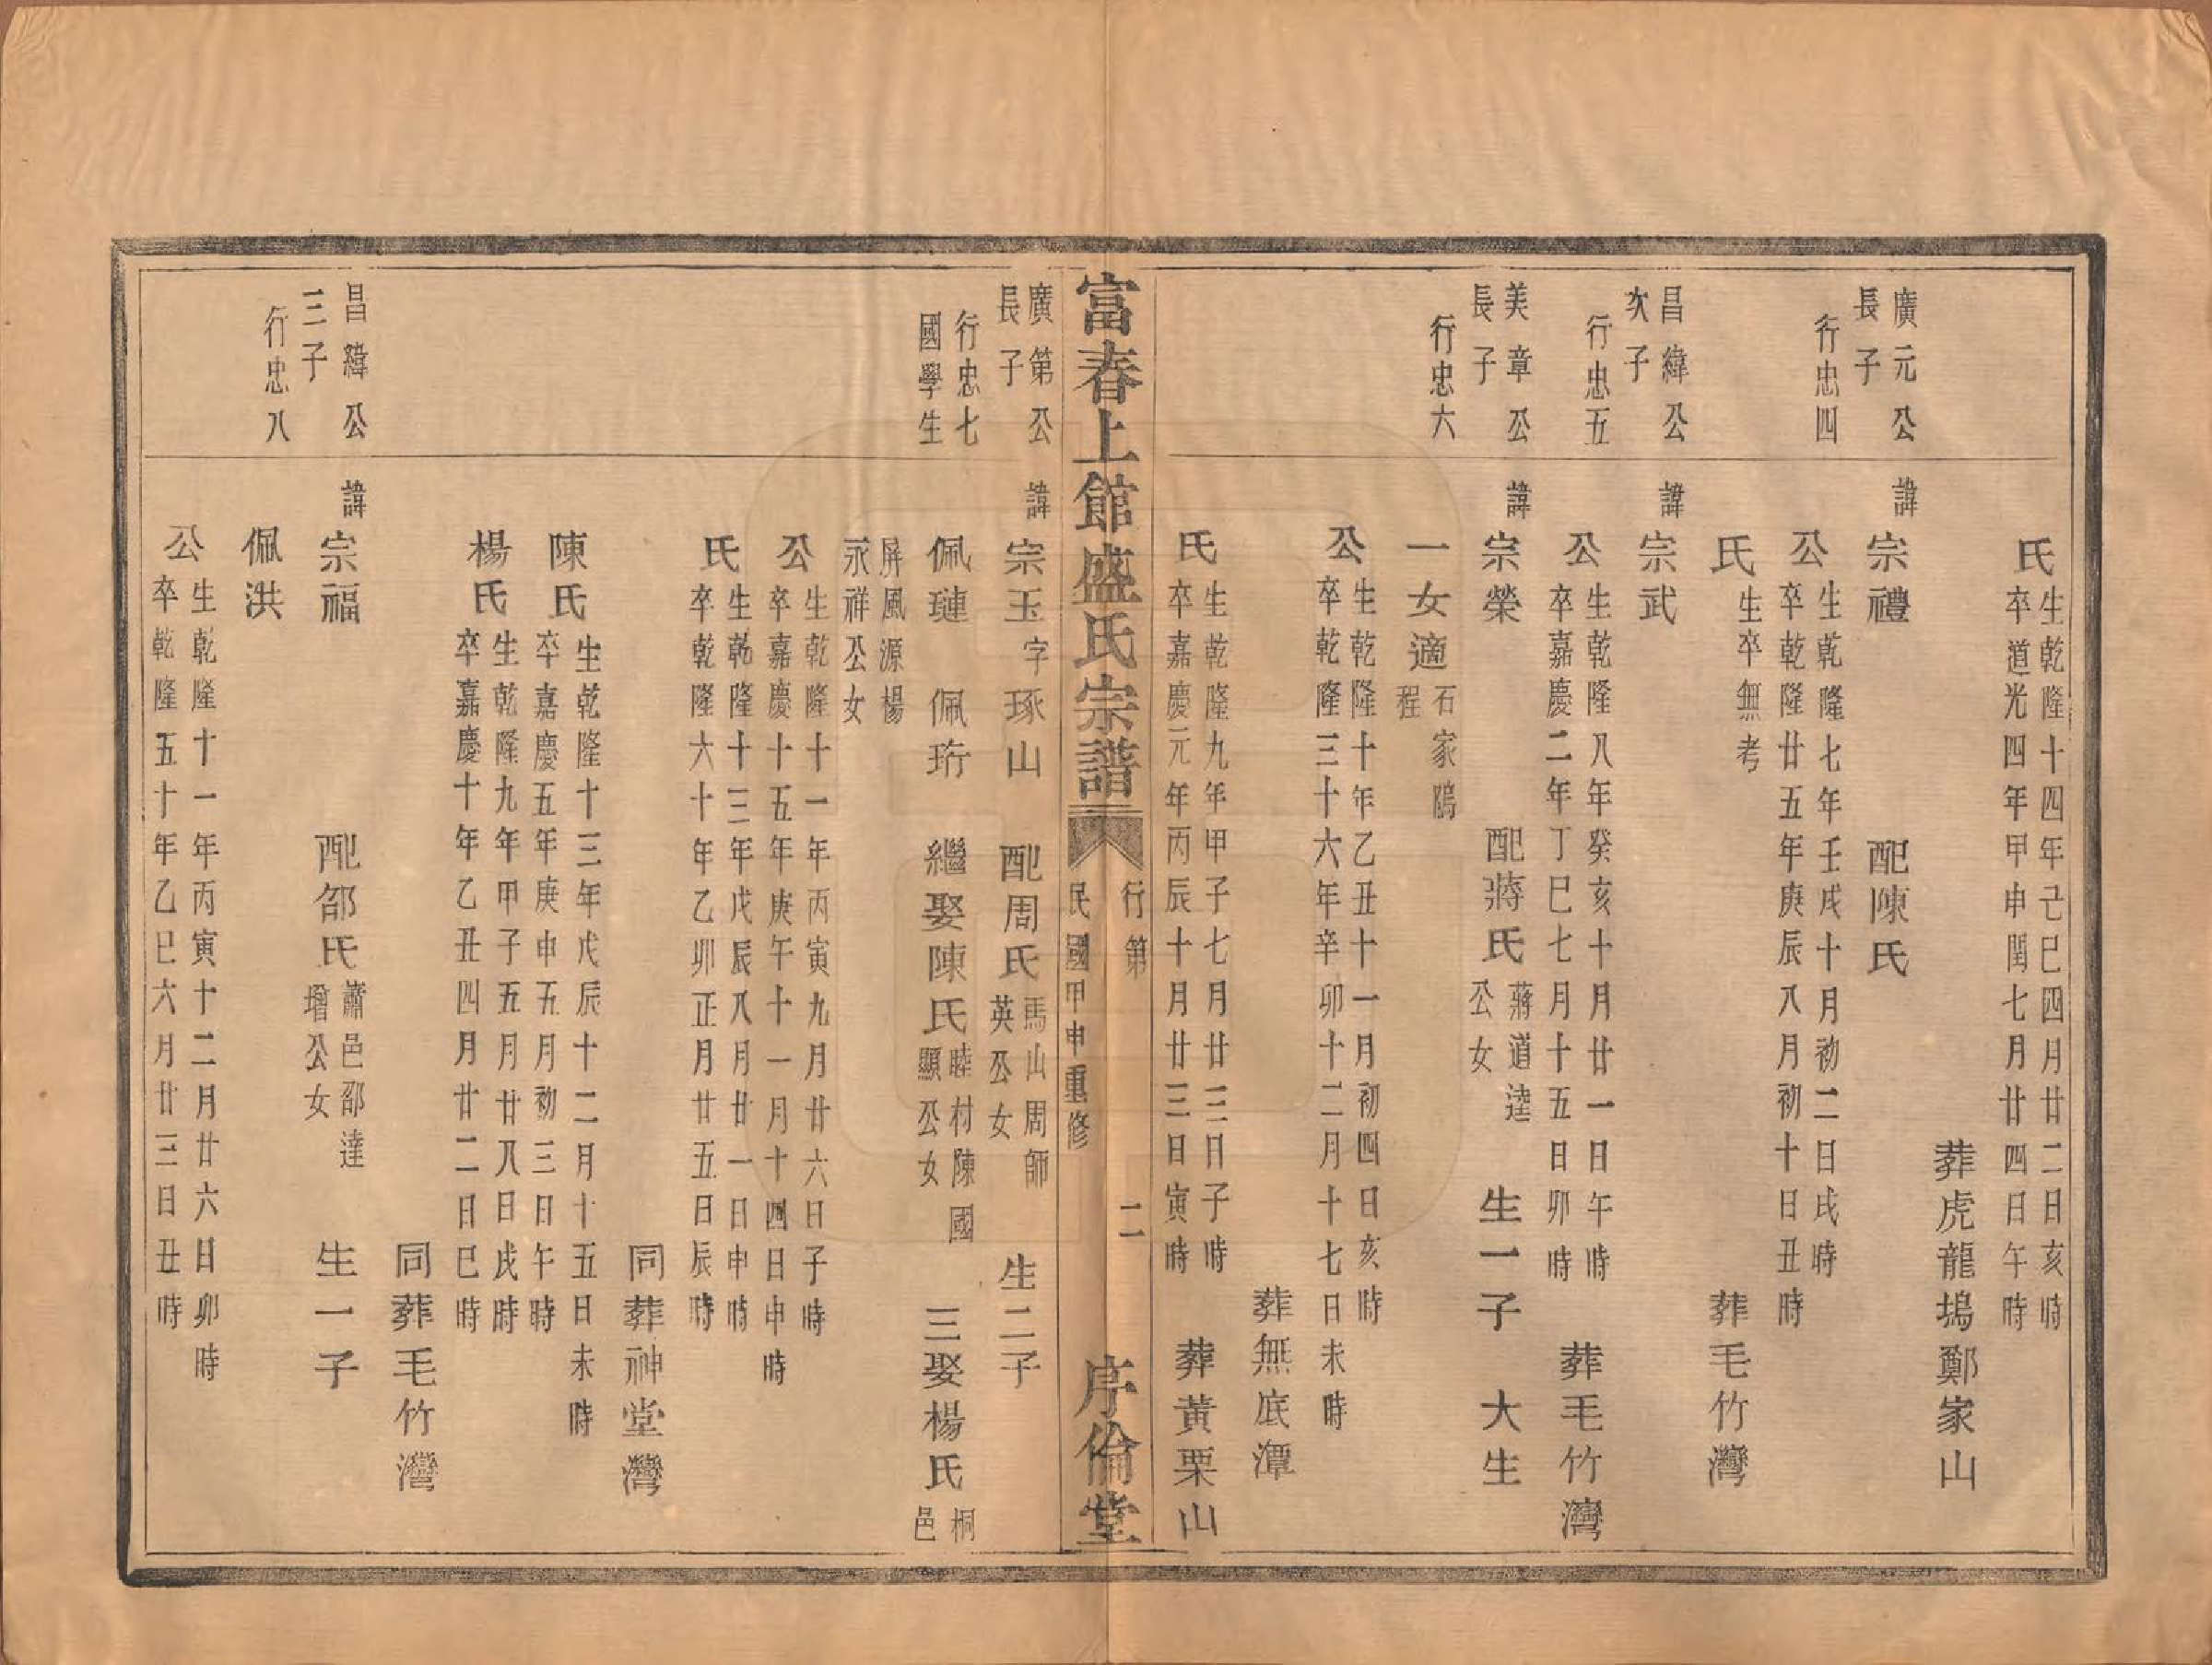 氏生乾隆十四年己巳四月廿二日亥時
卒道光四年甲申閏七月廿四日午時
葬虎龍塢鄭家山
廣元公
長子
行忠四
諱宗禮 配陳氏
公生乾隆七年壬戌十月初二日戌時
卒乾隆廿五年庚辰八月初十日丑時
氏生卒無考 葬毛竹灣
昌緯公
次子
行忠五
諱宗武
公生乾隆八年癸亥十月廿一日午時
卒嘉慶二年丁巳七月十五日卯時
葬毛竹灣
美章公
長子
行忠六
諱宗榮 配蔣氏蔣道逵
公女 生一子 大生
一女適石家隖
程
公生乾隆十年乙丑十一月初四日亥時
卒乾隆三十六年辛卯十二月十七日未時
葬無底潭
氏生乾隆九年甲子七月廿三日子時
卒嘉慶元年丙辰十月廿三日寅時
葬黃栗山
富春上館盛氏宗譜 行第 二
民國甲申重修 序倫堂
廣第公
長子
行忠七
國學生
諱宗玉字琢山 配周氏馬山周師
英公女 生二子
佩璉 佩珩 繼娶陳氏睦村陳國
顯公女 三娶楊氏桐
邑
屏風源楊
永祥公女
公生乾隆十一年丙寅九月廿六日子時
卒嘉慶十五年庚午十一月十四日申時
氏生乾隆十三年戊辰八月廿一日申時
卒乾隆六十年乙卯正月廿五日辰時
同葬神堂灣
陳氏生乾隆十三年戊辰十二月十五日未時
卒嘉慶五年庚申五月初三日午時
楊氏生乾隆九年甲子五月廿八日戌時
卒嘉慶十年乙丑四月廿二日巳時
同葬毛竹灣
昌緯公
三子
行忠八
諱宗福 配邵氏蕭邑邵達
增公女 生一子
佩洪
公生乾隆十一年丙寅十二月廿六日卯時
卒乾隆五十年乙巳六月廿三日丑時